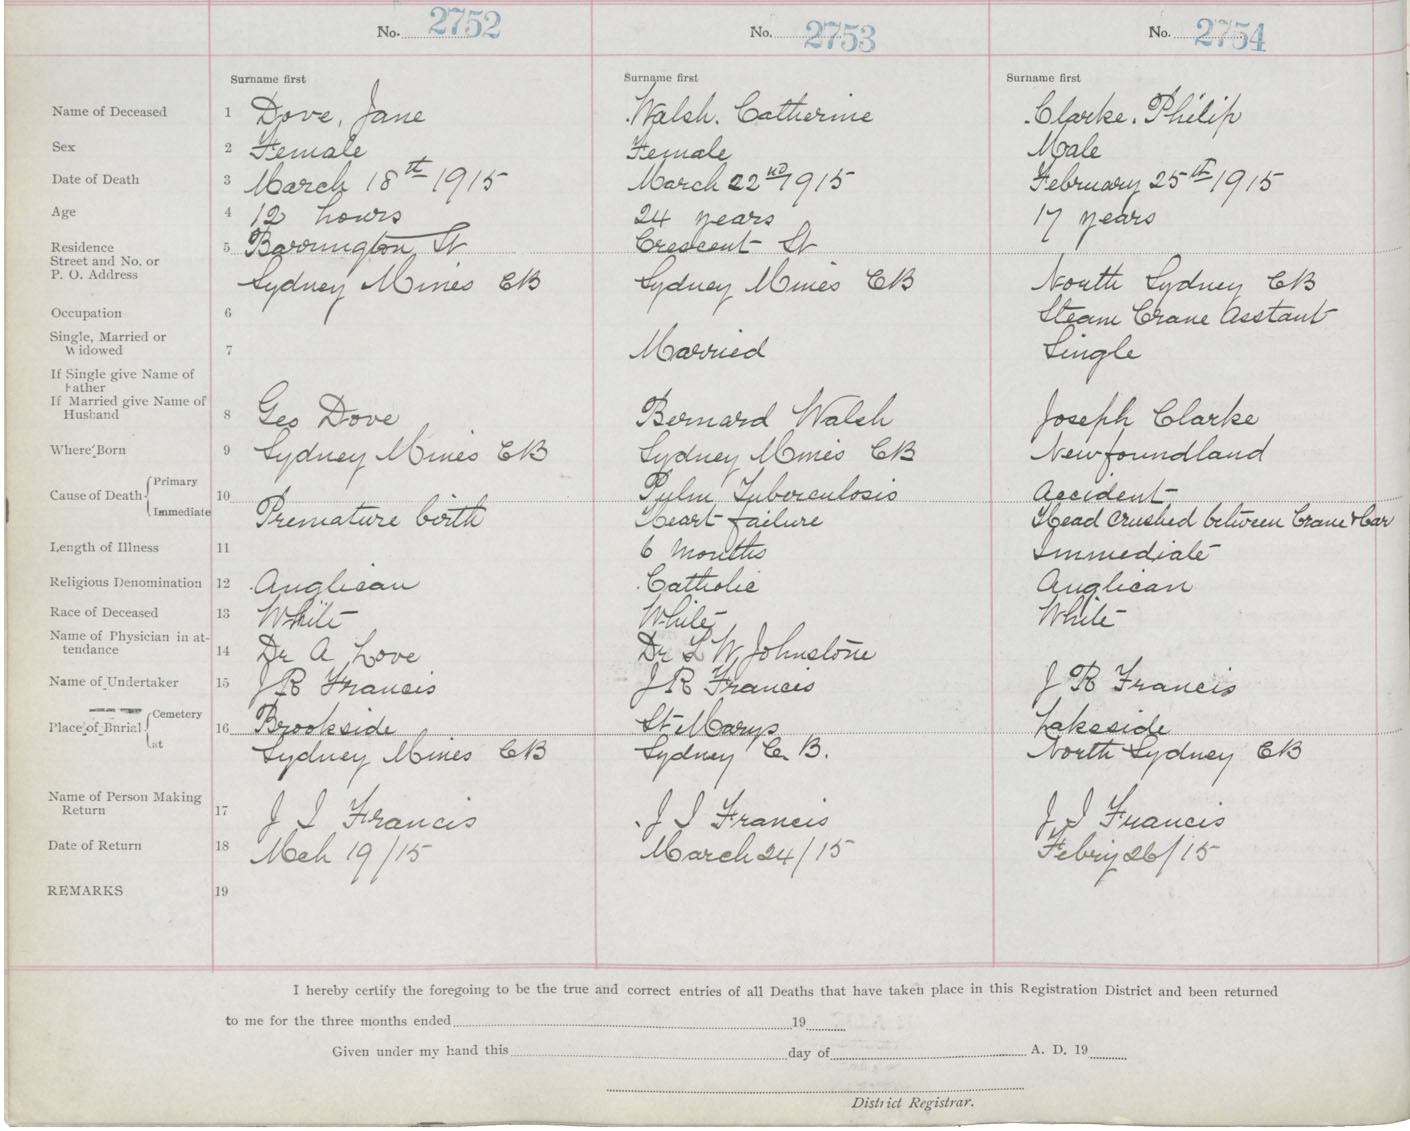 No. 2752 No. 2753 No. 2754
Surname first Surname first Surname first
Name of Deceased 1 Dove, Jane Walsh. Catherine Clarke. Philip
Sex 2 Female Female Male
Date of Death 3 March 18th 1915 March 22nd 1915 February 25th 1915
Age 4 12 hours 24 years 17 years
Residence 5 Barrington St Crescent St
Street and No. or
P. O. Address Sydney Mines CB Sydney Mines CB North Sydney CB
Occupation 6 Steam Crane Asstant
Single, Married or
Widowed 7 Married Single
If Single give Name of
Father
If Married give Name of
Husband 8 Geo Dove Bernard Walsh Joseph Clarke
Where Born 9 Sydney Mines CB Sydney Mines CB Newfoundland
Primary Pulm Tuberculosis Accident
Cause of Death 10
Immediate Premature birth Heart failure Head crushed between Crane & Car
Length of Illness 11 6 months Immediate
Religious Denomination 12 Anglican Catholic Anglican
Race of Deceased 13 White White White
Name of Physician in at-
tendance 14 Dr A Love Dr L W Johnstone
Name of Undertaker 15 J R Francis J R Francis J R Francis
Cemetery
Place of Burial 16 Brookside St Marys Lakeside
at Sydney Mines CB Sydney C. B. North Sydney CB
Name of Person Making
Return 17 J I Francis J I Francis J I Francis
Date of Return 18 Mch 19/15 March 24/15 Febriy 26/15
REMARKS 19
I hereby certify the foregoing to be the true and correct entries of all Deaths that have taken place in this Registration District and been returned
to me for the three months ended 19
Given under my hand this day of A. D. 19
District Registrar.